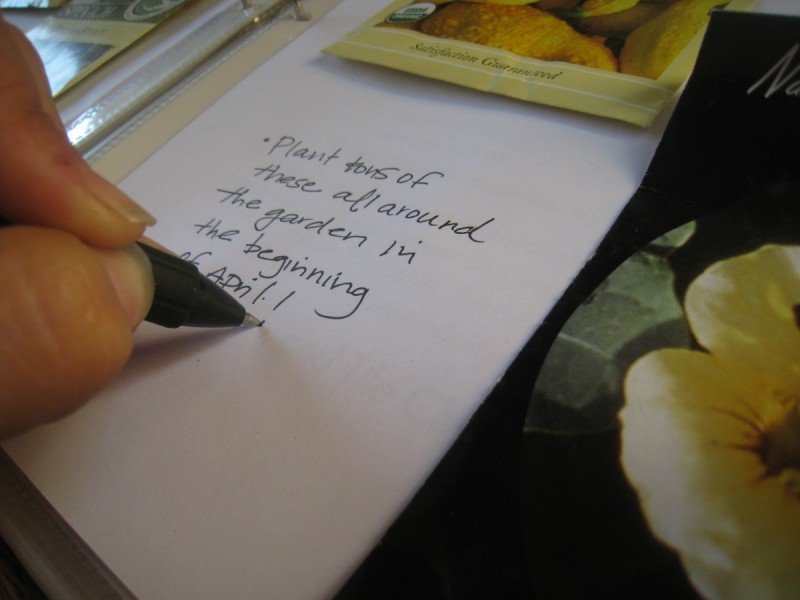 USDA
ORGANIC
Satisfaction Guaranteed
Na
• Plant tons of
these all around
the garden in
the beginning
of April. !